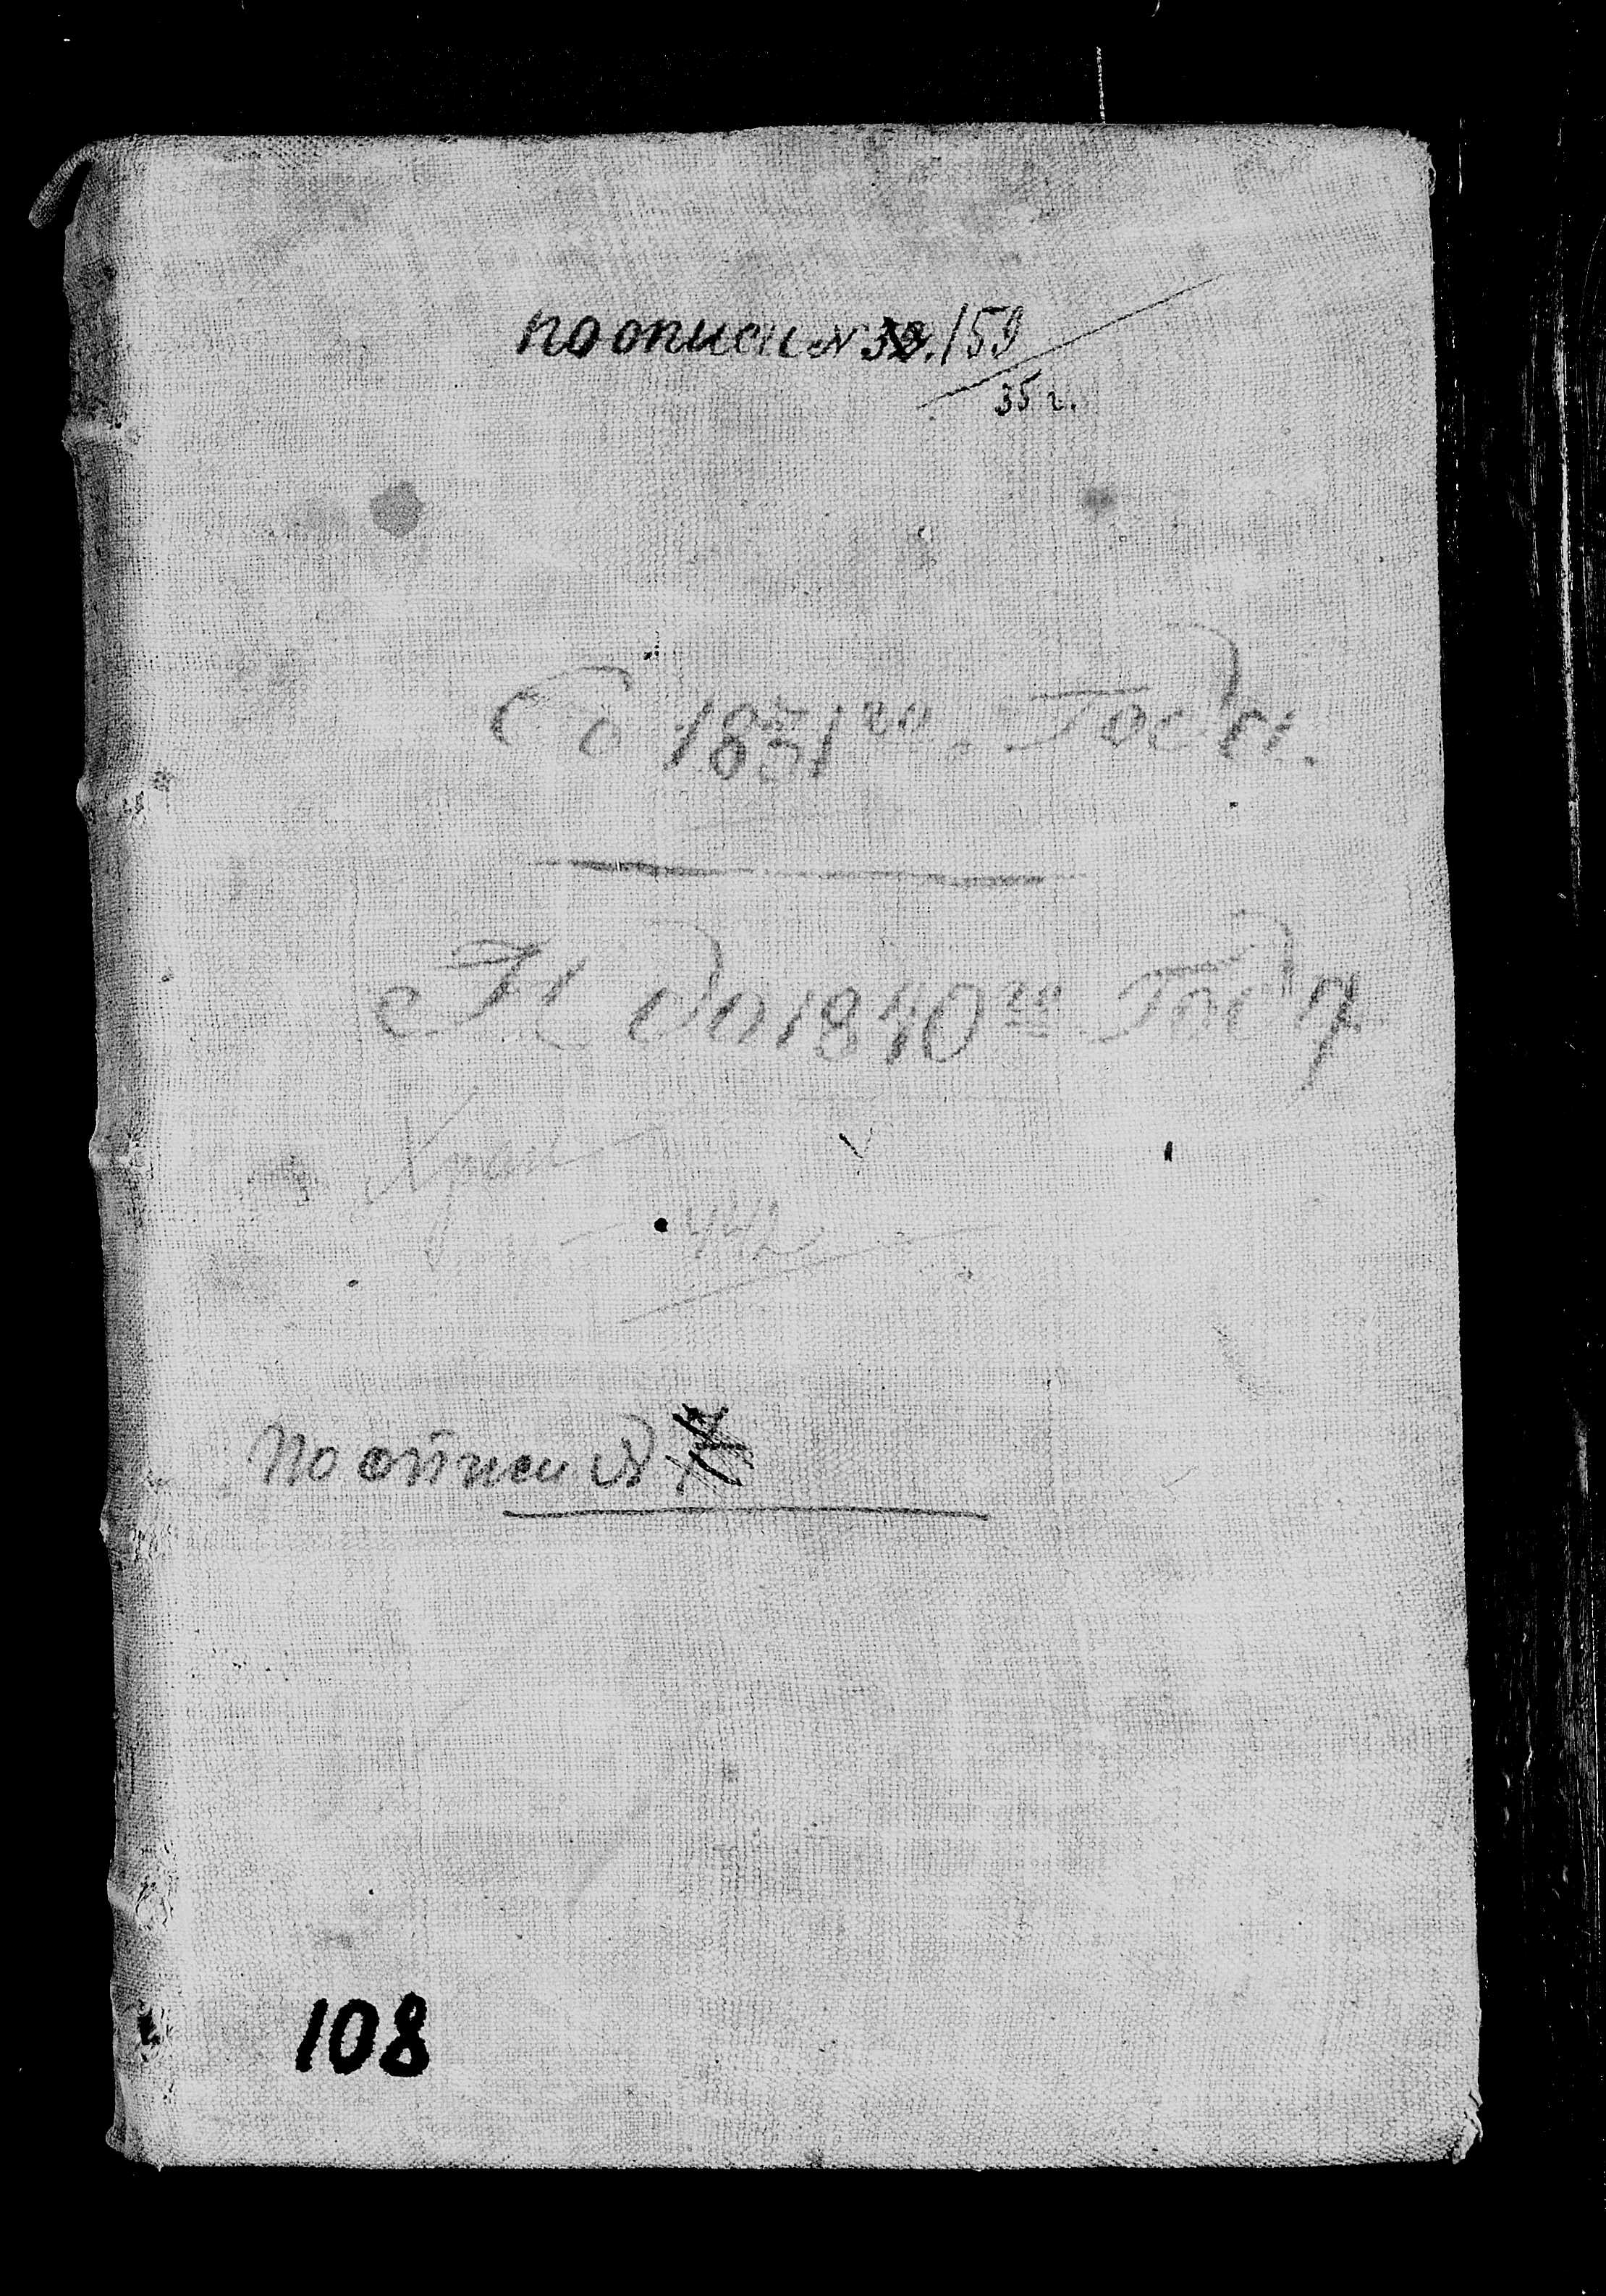 по описи № 38. 159
35 г.
Со 1831го. Года.
И до 1840го Году
Хран
442
по описи №
108